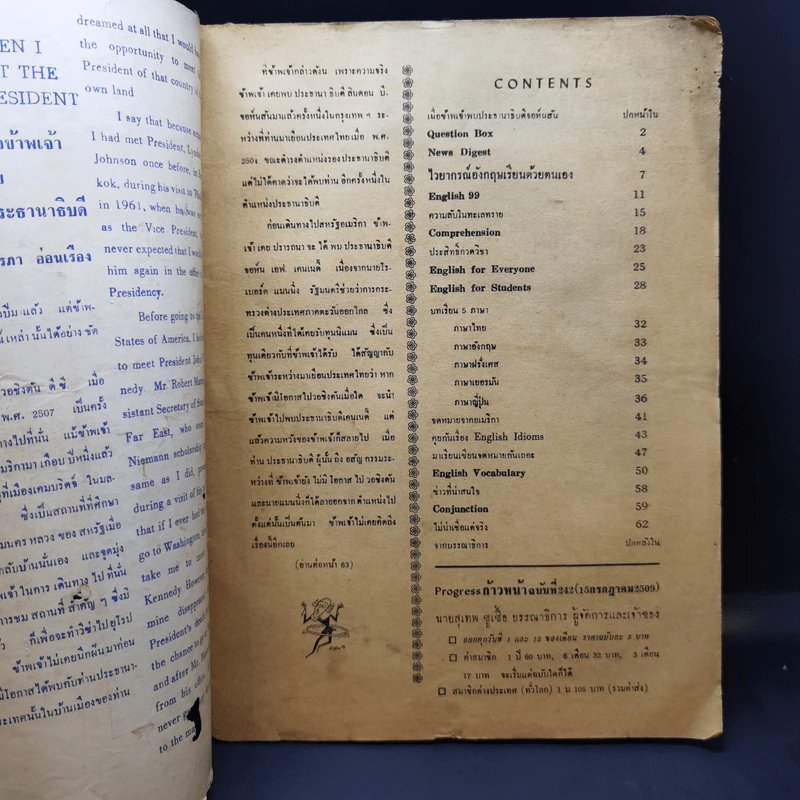 EN I
T THE
ESIDENT
อข้าพเจ้า
ระธานาธิบดี
รภา อ่อนเรือง
บปีม แล้ว แต่ข้าพ-
์เหล่า นั้นได้อย่าง ชัด
วอชิงตัน ดี ซี. เมื่อ
พ.ศ. 2507 เป็นครั้ง
ทางไปที่นั่น แม้ข้าพเจ้า
มริกามา เกือบ ปีหนึ่งแล้ว
ที่เมืองเคมบริดจ์ ในมล-
ซึ่งเป็นสถานที่ที่ศึกษา
นคร หลวง ของ สหรัฐเมื่อ
กลับบ้านนั่นเอง และจุดมุ่ง
เจ้าในการ เดินทาง ไป ที่นั่น
การชม สถานที่ สำคัญ ๆ ซึ่งมี
ก็เพื่อจะทำวีซ่าไปยุโรป
ข้าพเจ้าไม่เคยนึกฝันมาก่อน
มีโอกาสได้พบกับท่าน ประธานา-
ระเทศนั้นในบ้านเมืองของท่าน
dreamed at all that I would
the opportunity to meet
President of that country
own land
I say that because
I had met President,
Johnson once before, in
kok, during his visit to
in 1961, when he was
as the Vice President,
never expected that I
him again in the
Presidency.
Before going to
States of America, I
to meet President John
nedy. Mr. Robert
sistant Secretary of
Far East, who
Niemann scholarship
same as I did,
during a visit of
that if I ever had
go to Washington,
take me to
Kennedy. However,
mine
President's
the chance to
and after Mr.
from his
never
to the
ที่ข้าพเจ้ากล่าวดังนี้ เพราะความจริง
ข้าพเจ้า เคยพบ ประธานา ธิบดี ลินดอน บี.
จอห์นสันมาแล้วครั้งหนึ่งในกรุงเทพ ฯ ระ-
หว่างที่ท่านมาเยือนประเทศไทยเมื่อ พ.ศ.
2504 ขณะดำรงตำแหน่งรองประธานาธิบดี
แต่ไม่ได้คาดว่าจะได้พบท่าน อีกครั้งหนึ่งใน
ตำแหน่งประธานาธิบดี
ก่อนเดินทางไปสหรัฐอเมริกา ข้าพ-
เจ้า เคย ปรารถนา จะ ได้ พบ ประธานาธิบดี
จอห์น เอฟ. เคนเนดี้ เนื่องจากนายโร-
เบอร์ต แมนนิ่ง รัฐมนตรีช่วยว่าการกระ-
ทรวงต่างประเทศภาคตะวันออกไกล ซึ่ง
เป็นคนหนึ่งที่ได้เคยรับทุนนีแมน ซึ่งเป็น
ทุนเดียวกับที่ข้าพเจ้าได้รับ ได้สัญญากับ
ข้าพเจ้าระหว่างมาเยือนประเทศไทยว่า หาก
ข้าพเจ้ามีโอกาสไปวอชิงตันเมื่อใด จะนำ
ข้าพเจ้าไปพบประธานาธิบดีเคนเนดี้ แต่
แล้วความหวังของข้าพเจ้าก็สลายไป เมื่อ
ท่าน ประธานาธิบดี ผู้นั้น ถึง อสัญ กรรมระ-
หว่างที่ ข้าพเจ้ายัง ไม่มี โอกาส ไป วอชิงตัน
และนายแมนนิ่งก็ได้ลาออกจาก ตำแหน่งไป
ตั้งแต่นั้นเป็นต้นมา ข้าพเจ้าไม่เคยคิดถึง
เรื่องนี้อีกเลย
(อ่านต่อหน้า 63)
CONTENTS
เมื่อข้าพเจ้าพบประธานาธิบดีจอห์นสัน ปกหน้าใน
Question Box 2
News Digest 4
ไวยากรณ์อังกฤษเรียนด้วยตนเอง 7
English 99 11
ความลับในทะเลทราย 15
Comprehension 18
ประสิทธิ์กวีวิชา 23
English for Everyone 25
English for Students 28
บทเรียน 5 ภาษา
ภาษาไทย 32
ภาษาอังกฤษ 33
ภาษาฝรั่งเศส 34
ภาษาเยอรมัน 35
ภาษาญี่ปุ่น 36
จดหมายจากอเมริกา 41
คุยกันเรื่อง English Idioms 43
มาเรียนเขียนจดหมายกันเถอะ 47
English Vocabulary 50
ข่าวที่น่าสนใจ 58
Conjunction 59
ไม่น่าเชื่อแต่จริง 62
จากบรรณาธิการ ปกหลังใน
Progress ก้าวหน้า ฉบับที่ 242 (15 กรกฎาคม 2509)
นายสุเทพ ชูเชื้อ บรรณาธิการ ผู้จัดการและเจ้าของ
ออกทุกวันที่ 1 และ 15 ของเดือน ราคาฉบับละ 3 บาท
ค่าสมาชิก 1 ปี 60 บาท, 6 เดือน 32 บาท, 3 เดือน
17 บาท จะเริ่มแต่ฉบับใดก็ได้
สมาชิกต่างประเทศ (ทั่วโลก) 1 ป 105 บาท (รวมค่าส่ง)